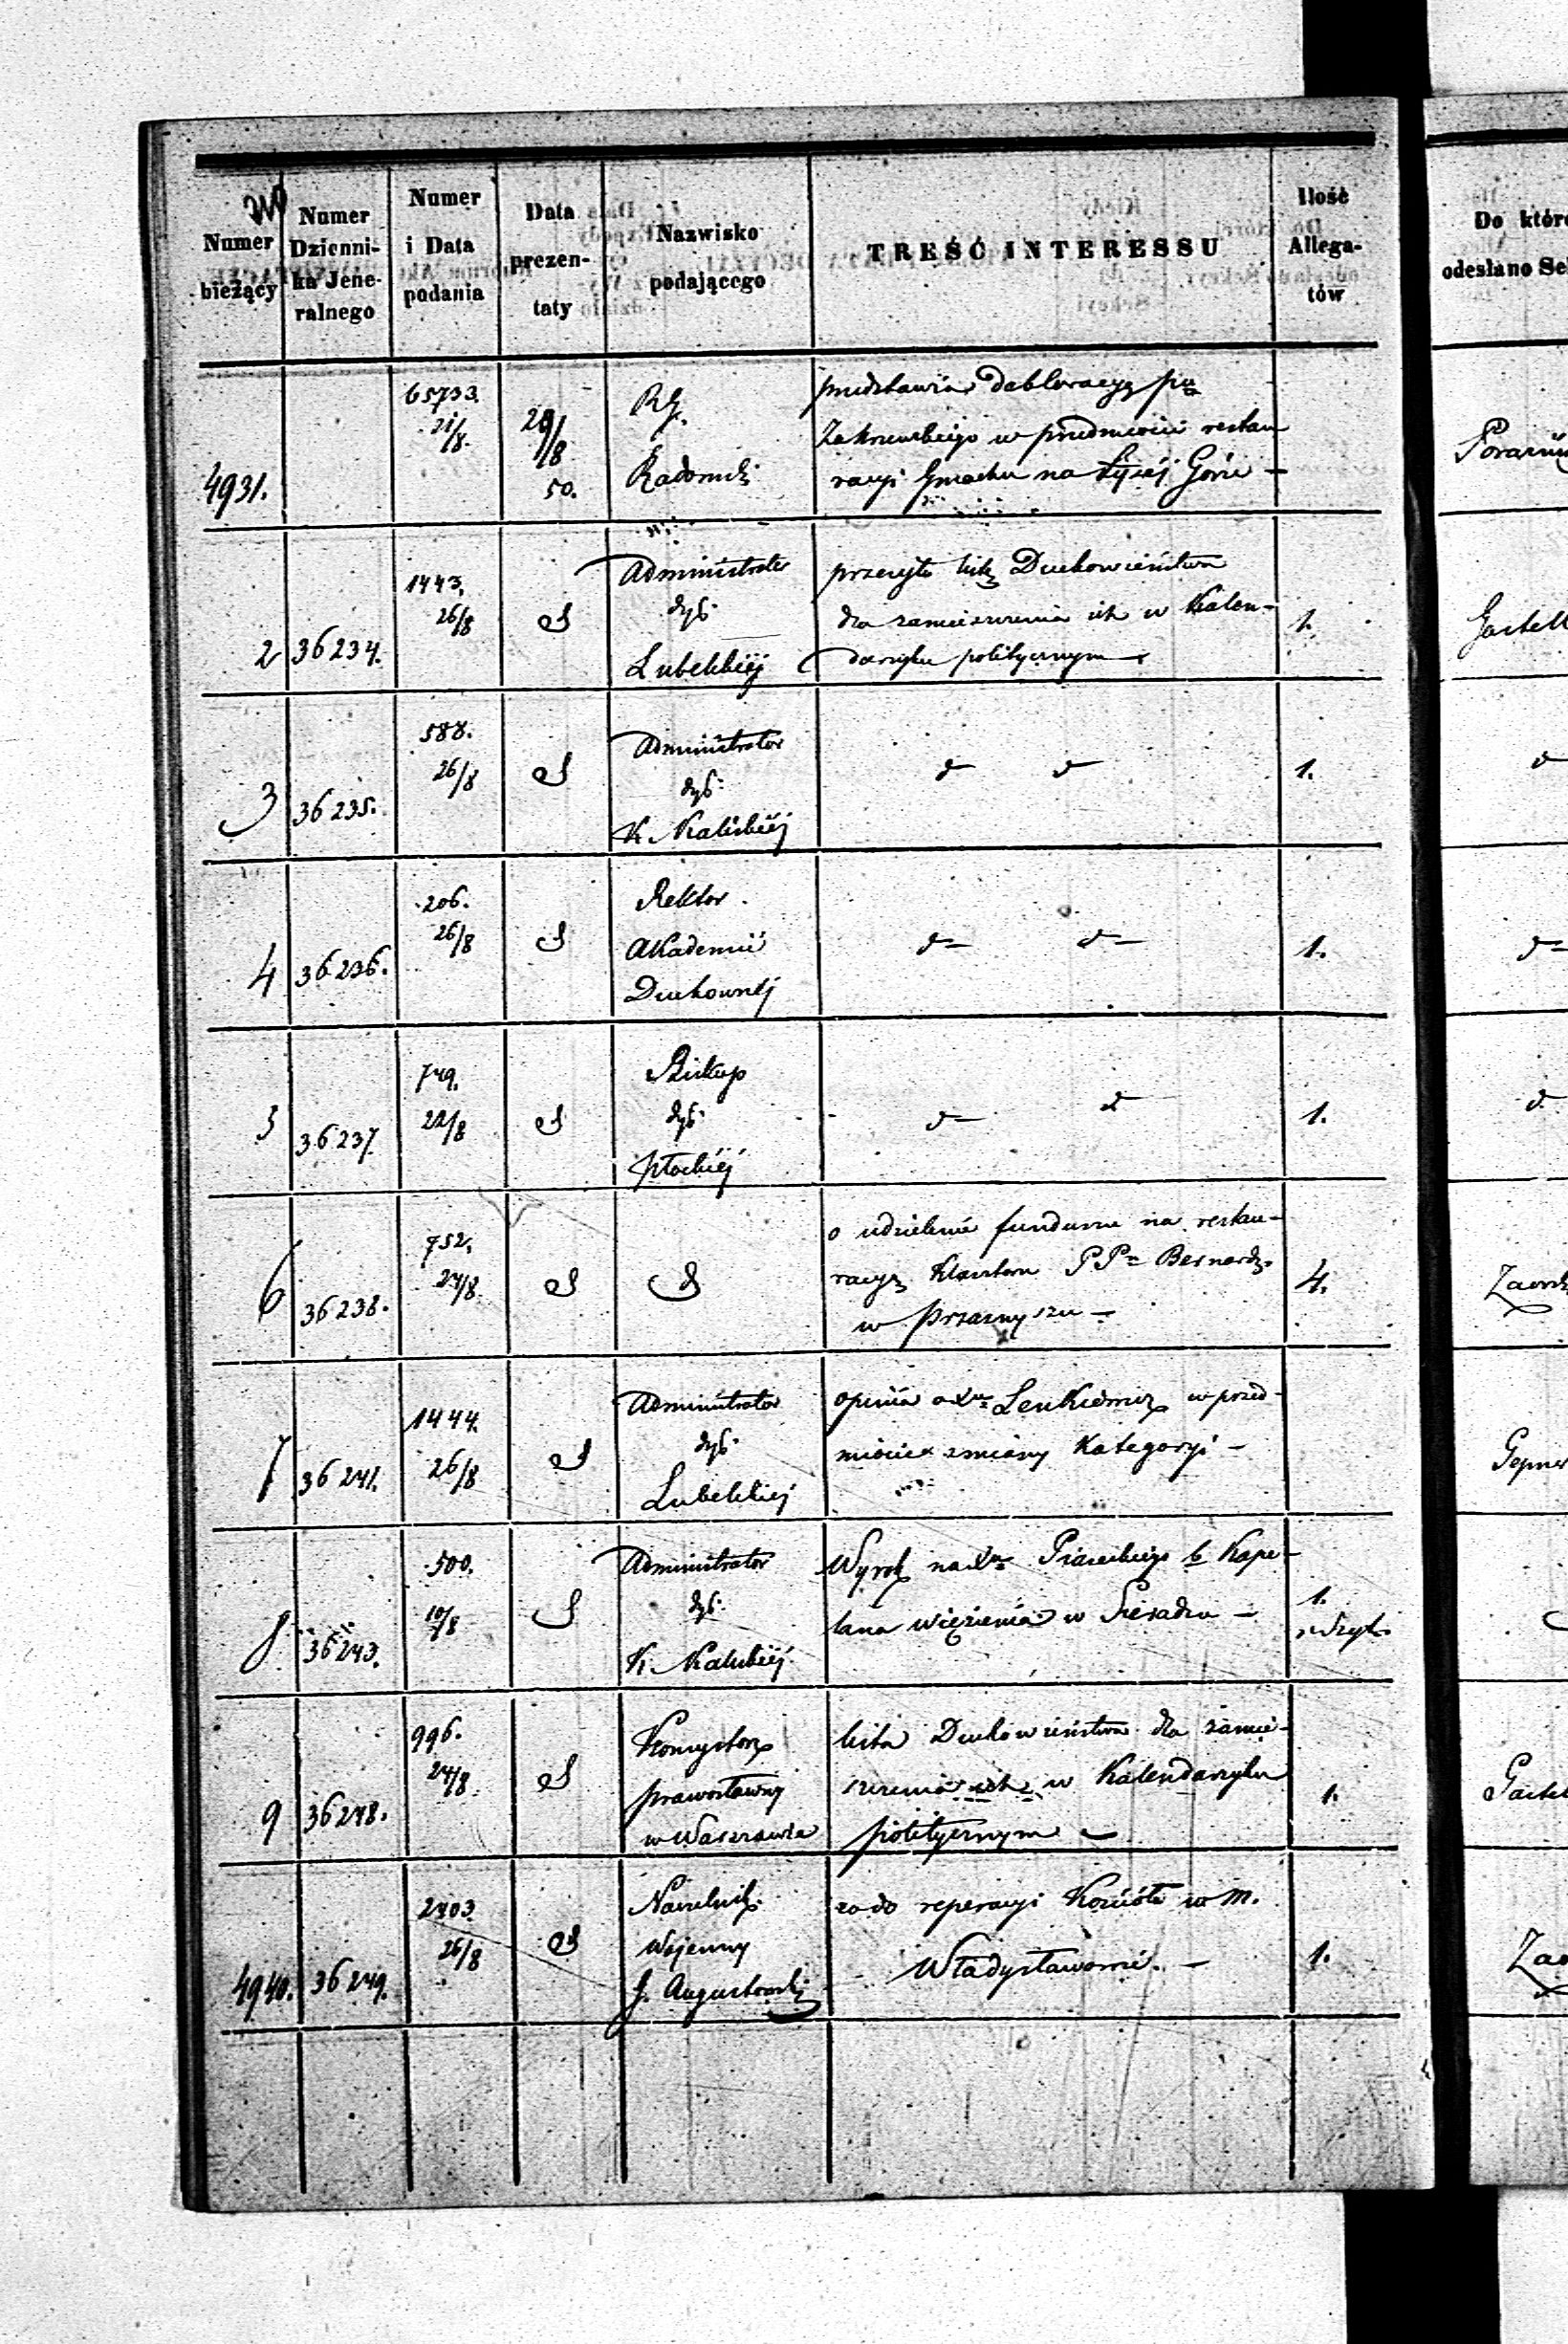 Numer bieżący
Numer Dzienni- ka Jene- ralnego
Numer i Data podania
Data prezen- taty
Nazwisko podającego
TREŚĆ INTERESSU
Ilość Allega- tów
Do które
odesłano Se
4931.
65733.
21/8.
29/8
50.
R. G.
Radomski
przedstawia Deklaracyę pna
Zakrzewskiego w przedmiocie restau
racyi Gmachu na Łysej Górze —
2
36234.
1443.
26/8
Administrator
dyć:
Lubelskiej
przesyła listę Duchowieństwa
dla zamieszczenia ich w Kalen-
darzyku politycznym
1.
3
36235.
588.
26/8
Administrator
dyć:
K. Kaliskiej
d d
1.
d
4
36236.
206.
26/8
Rektor
Akademii
Duchownej
d— d—
1.
d—
5
36237.
749.
22/8
Biskup
dyć:
Płockiej
d— d
1.
d
6
36238.
752.
24/8
o udzielenie funduszu na restau-
racyę Klasztoru PPn Bernardy.
w Przasnyszu —
4.
7
36241.
1444.
26/8
Administrator
dyć:
Lubelskiej
opinia o Xu Lenkiewicz w przed-
miocie zmiany Kategoryi —
8
36243.
500.
10/8
Administrator
dyć:
K. Kaliskiej
Wyrok na Xa Piaseckiego b Kape-
lana więzienia w Sieradzu —
1.
9
36248.
996.
24/8
Konsystorz
prawosławny
w Warszawie
lista Duchowieństwa dla zamie-
szczenia ich w Kalendarzyku
politycznym —
1.
4940.
36249.
2403
26/8
Naczelnik
Wojenny
G. Augustowski
co do reperacyi Kościoła w m.
Władysławowie. —
1.